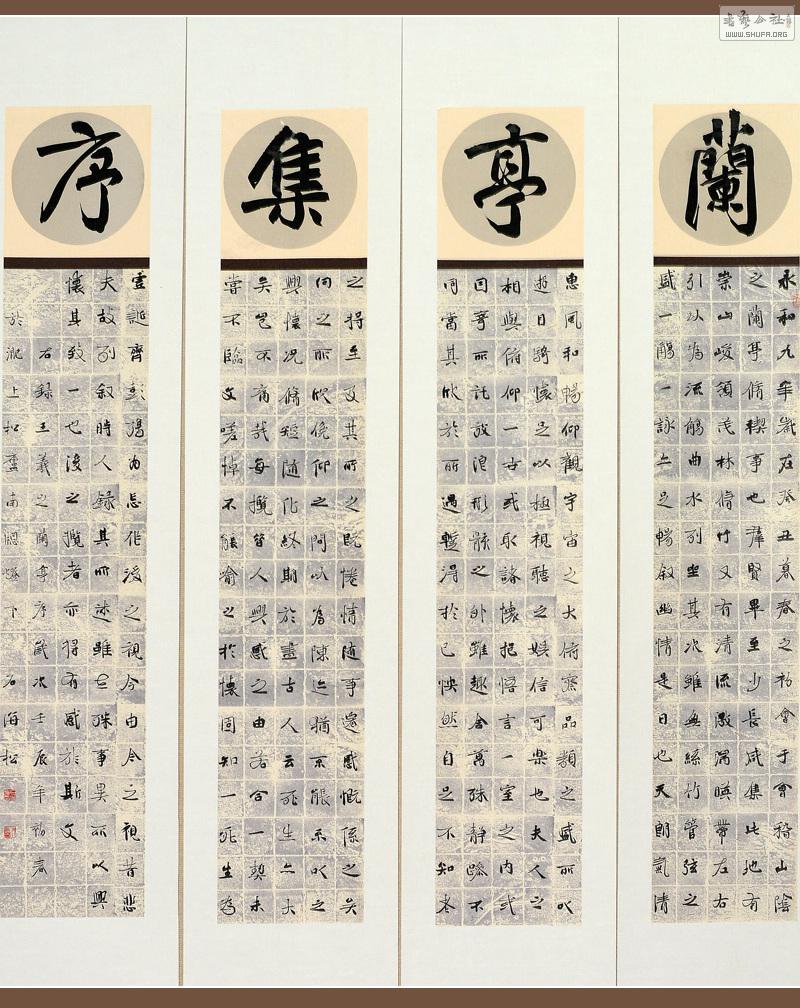 蘭亭集序
永和九年歲在癸丑暮春之初會于會稽山陰
之蘭亭脩禊事也群賢畢至少長咸集此地有
崇山峻領茂林脩竹又有清流激湍暎帶左右
引以為流觴曲水列坐其次雖無絲竹管弦之
盛一觴一詠亦足暢敘幽情是日也天朗氣清
惠風和暢仰觀宇宙之大俯察品類之盛所以
遊目騁懷足以極視聽之娛信可樂也夫人之
相與俯仰一世或取諸懷抱悟言一室之內或
因寄所託放浪形骸之外雖趣舍萬殊靜躁不
同當其欣於所遇蹔得於己怏然自足不知老
之將至及其所之既惓情隨事遷感慨係之矣
向之所欣俛仰之間以為陳迹猶不能不以之
興懷況脩短隨化終期於盡古人云死生亦大
矣豈不痛哉每攬昔人興感之由若合一契未
嘗不臨文嗟悼不能喻之於懷固知一死生為
虛誕齊彭殤為妄作後之視今由今之視昔悲
夫故列敘時人錄其所述雖世殊事異所以興
懷其致一也後之攬者亦將有感於斯文
右錄王羲之蘭亭序歲次壬辰年初春
於淝上南窗下石海松
書藝公社
WWW.SHUFA.ORG